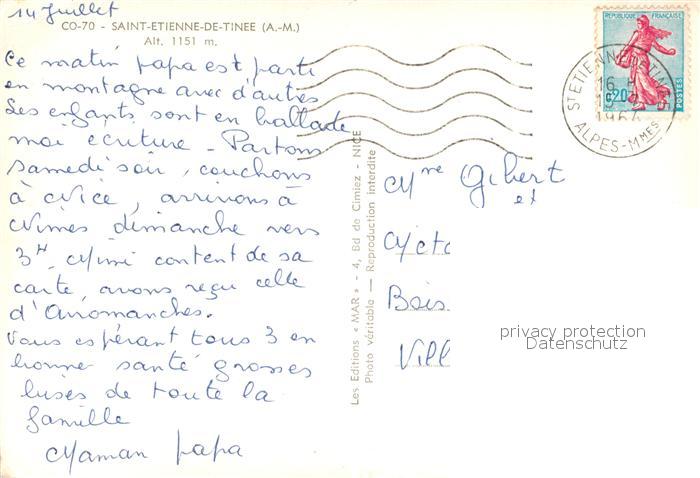 14 Juillet
CO-70 - SAINT-ETIENNE-DE-TINEE (A.-M.)
Alt. 1151 m.
Ce matin papa est parti
en montagne avec d'autres
Les enfants sont en ballade
moi écriture - Partons
samedi soir, couchons
à Nice, arrivons à
Nimes dimanche vers
3H, Mimi content de sa
carte, avons reçu celle
d'Arromanches.
Vous espérant tous 3 en
bonne santé grosses
bises de toute la
famille
Maman papa
Les Editions « MAR » - 4, Bd de Cimiez - NICE
Photo véritable — Reproduction interdite
REPUBLIQUE FRANÇAISE
0,20
POSTES
ST ETIENNE DE TINEE
16 H
1964
ALPES-MMES
Mme Gibert
et
Bois
Vill
privacy protection
Datenschutz